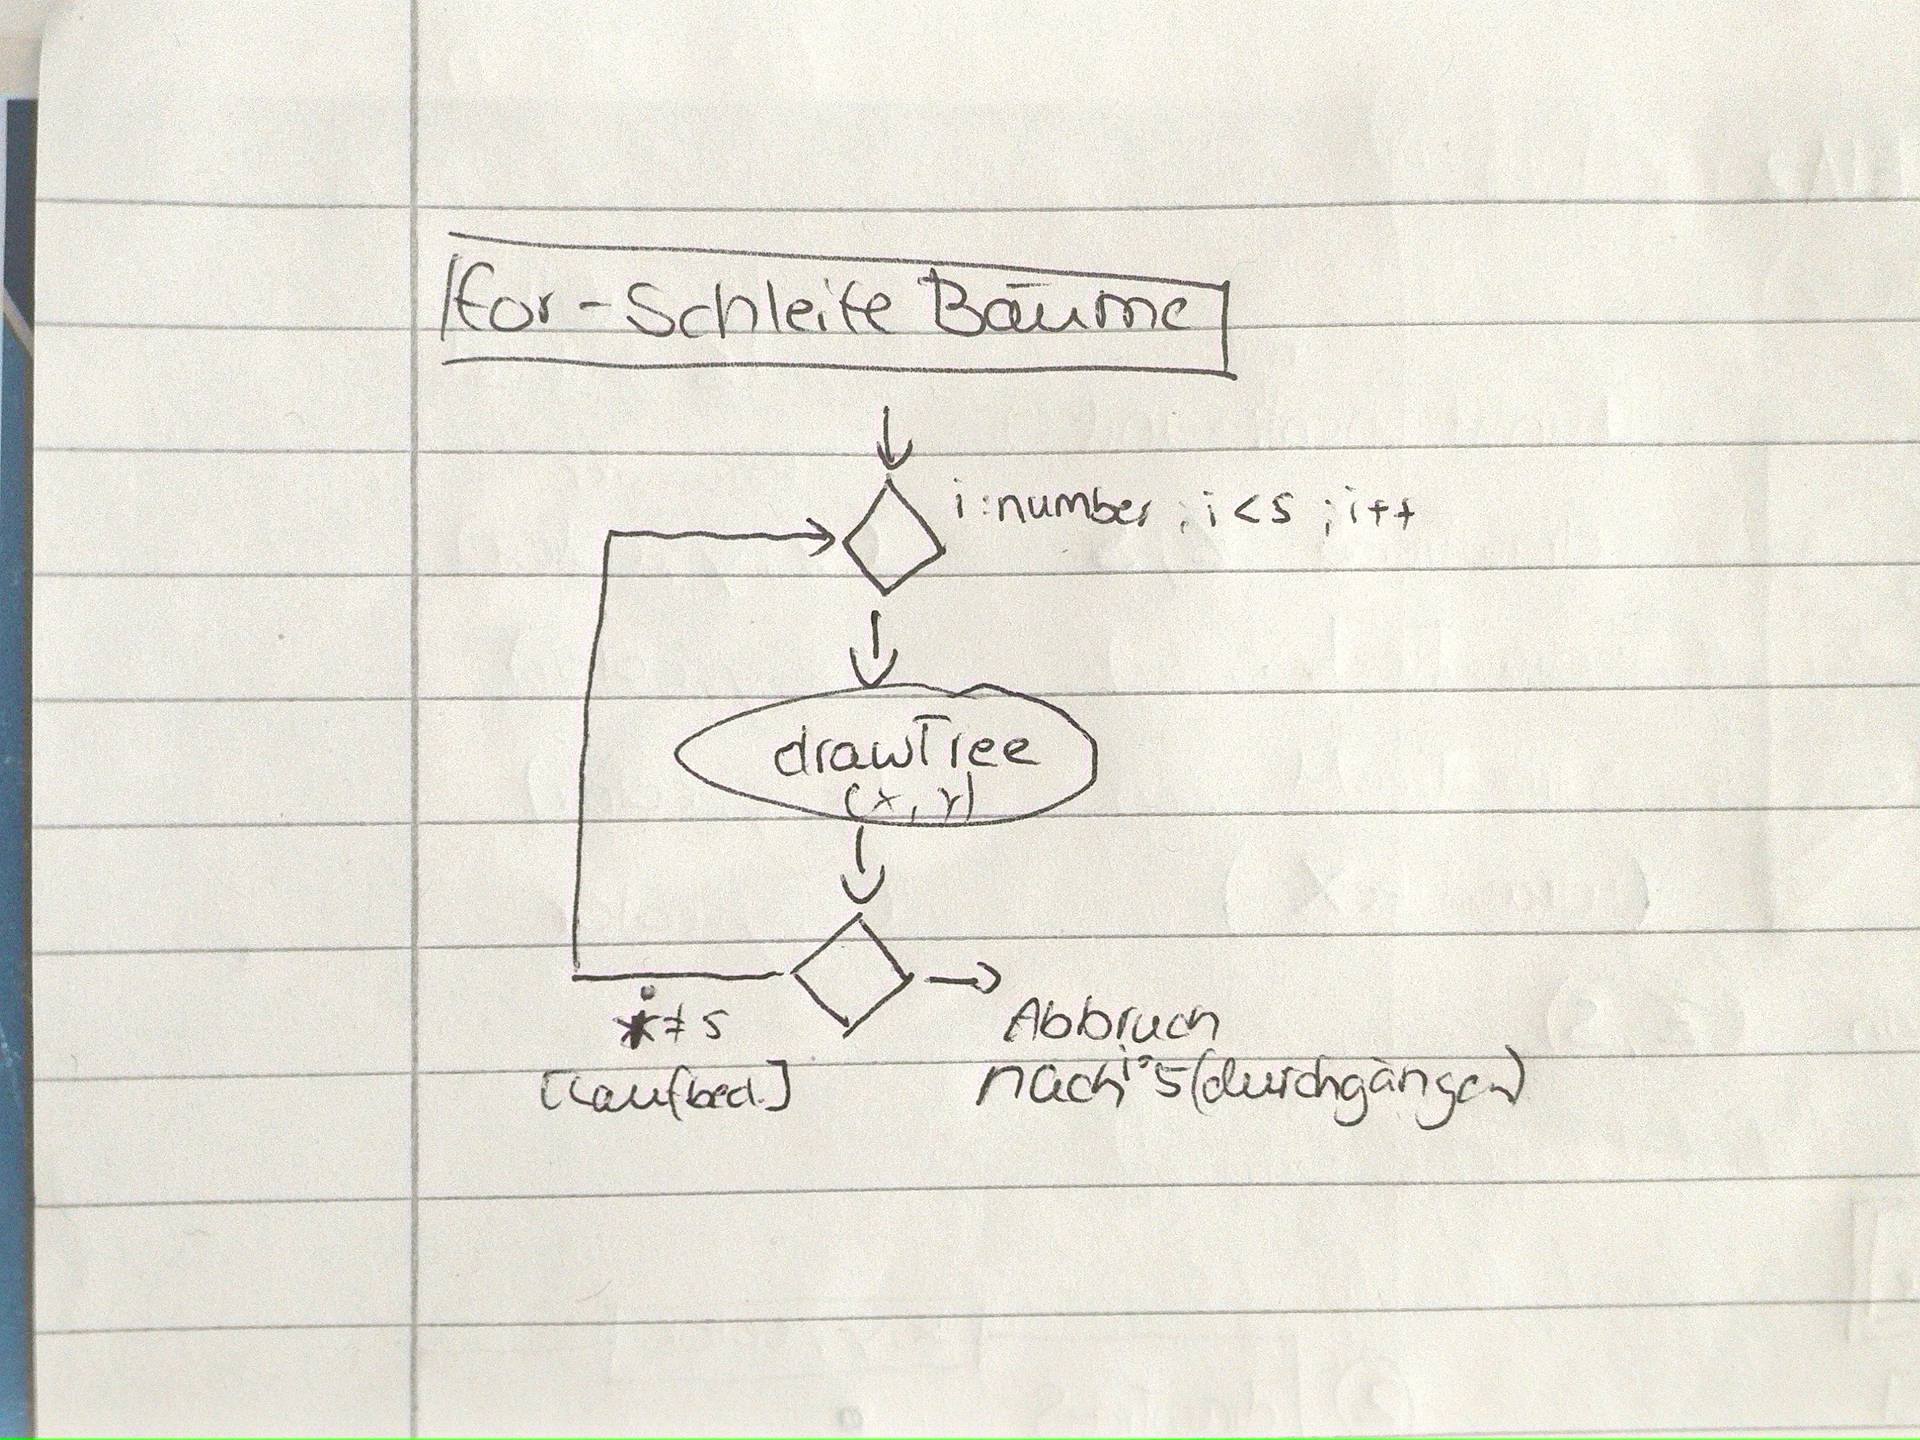 for-Schleife Bäume
i:number ; i<5 ; i++
drawTree
(x, y)
i≠5
[Laufbed.]
Abbruch
nach i=5(durchgängen)